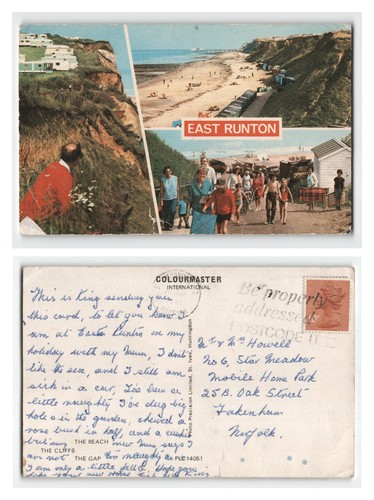 EAST RUNTON
COLOURMASTER
INTERNATIONAL
Be properly
addressed
POSTCODE IT
This is King sending you
this card, to let you know I
am at East Runton on my
holiday with my Mum, I don't
like the sea, and I still am
sick in a car, I've been a
little naughty I've dug big
holes in the garden, chewed a
rose bush in half, and a
but my new Mum says I
am not too naughty as
I am only a little fella. Hope you
like your new home
THE BEACH
THE CLIFFS
THE GAP
PLE 14051
Photo Precision Limited, St. Ives, Huntingdon
Mr & Mrs Howell
No 6, Star Meadow
Mobile Home Park
25B, Oak Street
Fakenham
Norfolk.